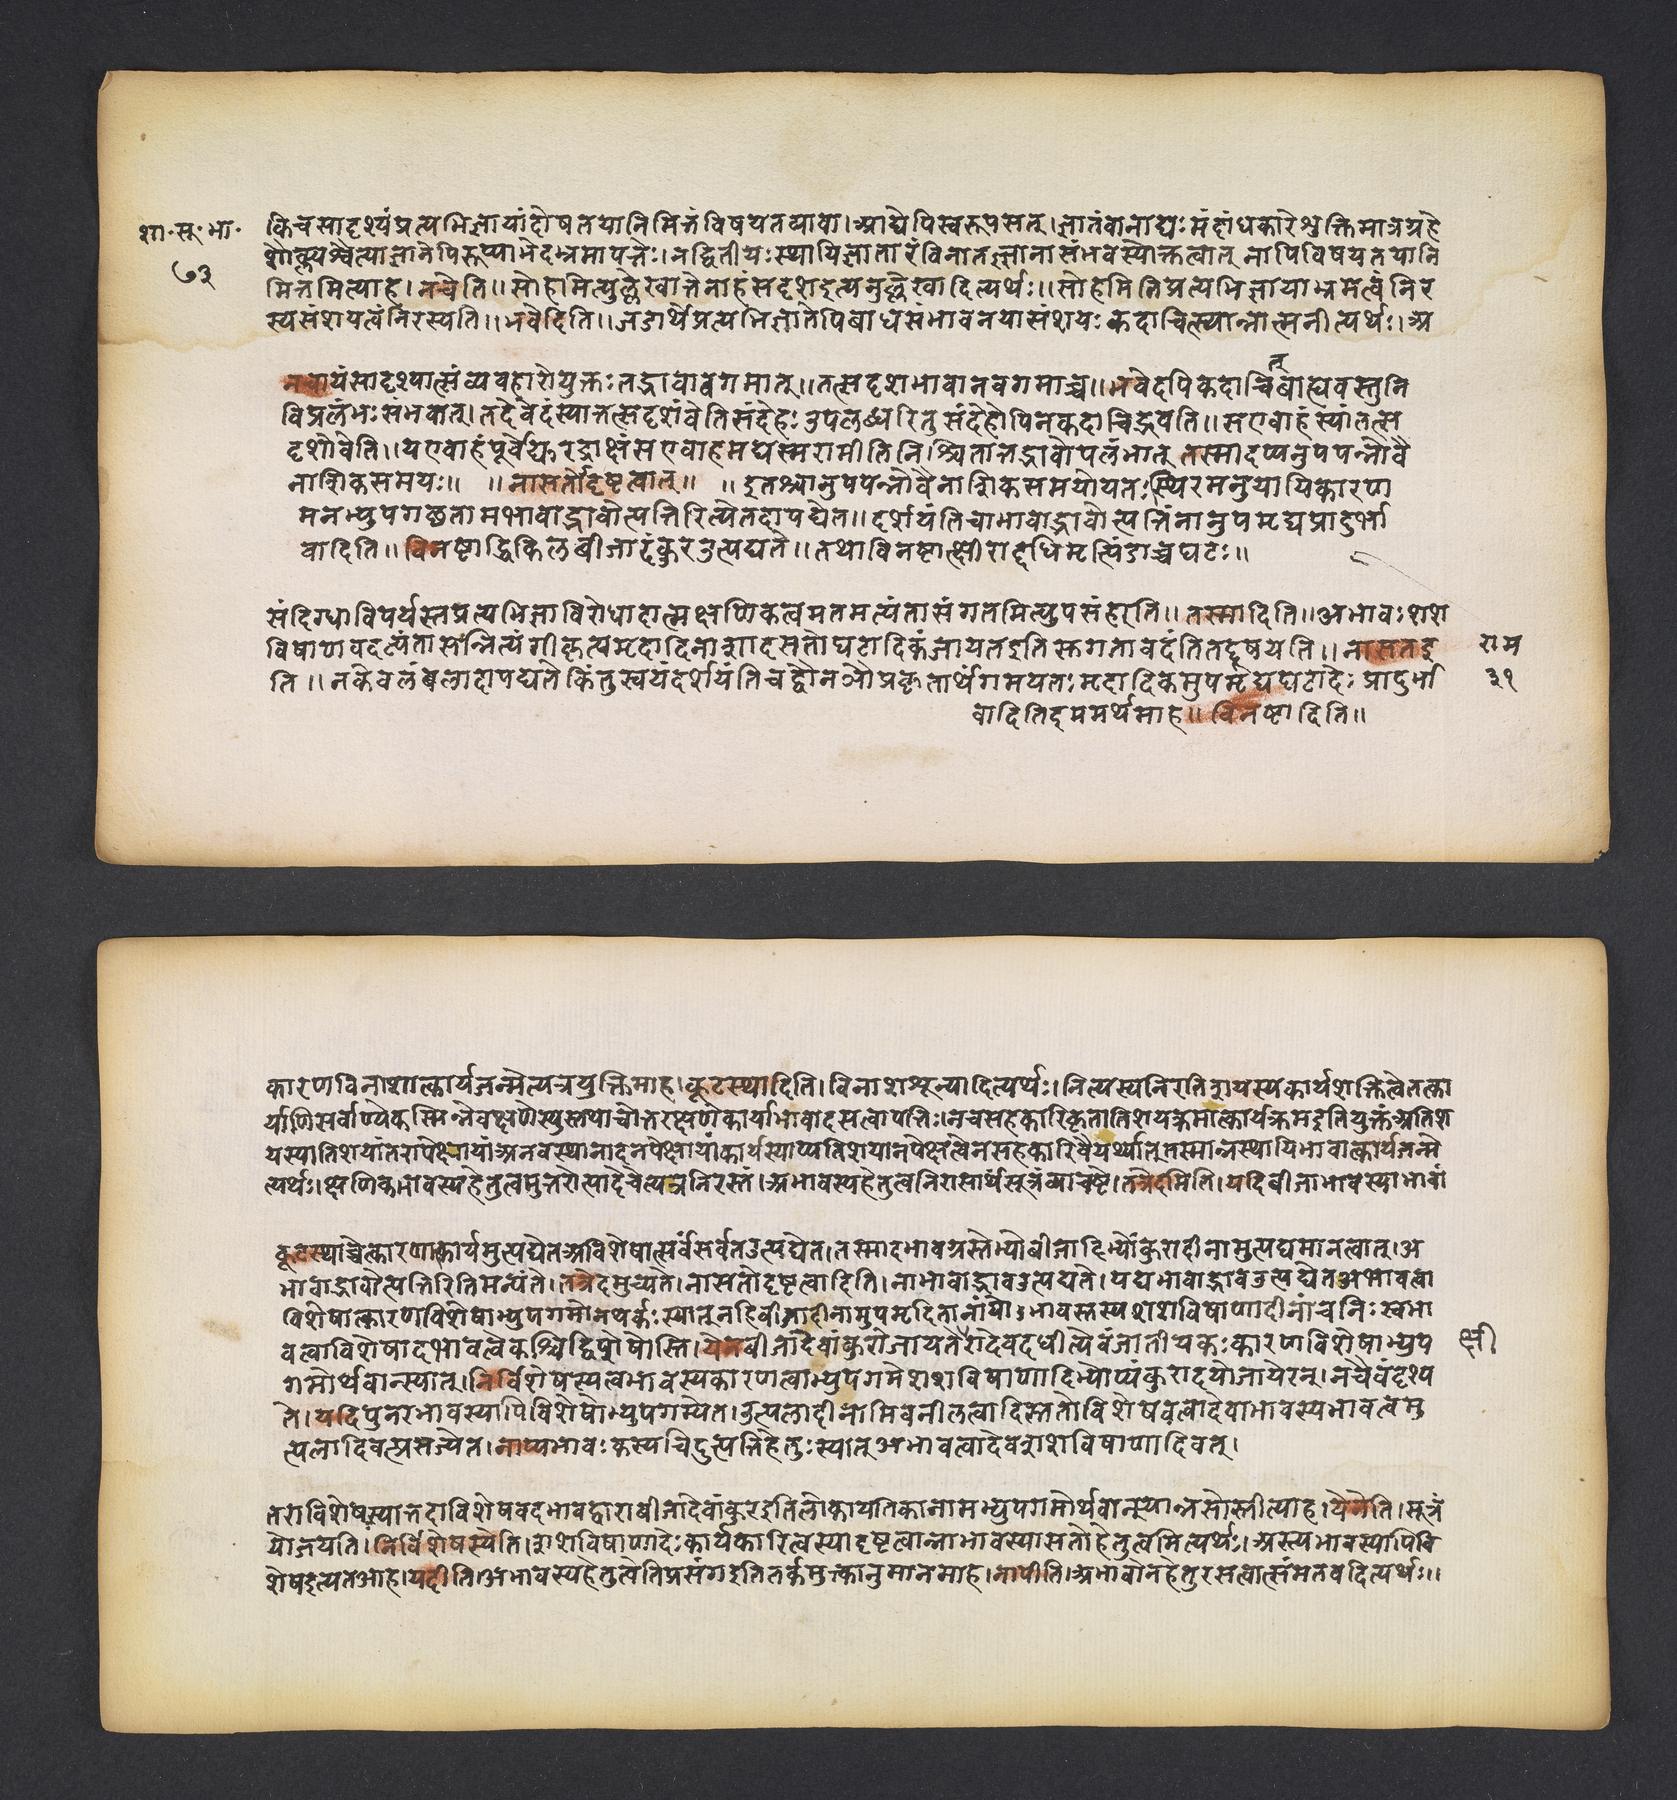 शा॰सू॰भा॰
७३
किंच सादृश्यं प्रत्यभिज्ञायां दोषतया निमित्तं विषयतया वा। आद्येपि स्वरूपसत्। ज्ञातं वा नाद्यः मंदांधकारे शुक्तिमात्रग्रहे
शौक्ल्यश्वैत्याज्ञानेपि रूप्याभेदभ्रमापत्तेः। नद्वितीयः स्थायिज्ञातारं विना तज्ज्ञानासंभवस्योक्तत्वात् नापि विषयतया नि
मित्तमित्याह। नचेति॥ सोहामित्युल्लेखात्तेनाहं सदृश इत्यनुल्लेखादित्यर्थः॥ सोहमिति प्रत्यभिज्ञाया भ्रमत्वं निर
स्य संशयत्वं निरस्यति॥ भवेदिति॥ जडार्थे प्रत्यभिज्ञातेपि बाधसंभावनया संशयः कदाचित्स्यान्नात्मनीत्यर्थः। अ
नचायं सादृश्यात्संव्यवहारो युक्तः तद्भावावगमात्॥ तत्सदृशभावानवगमाच्च॥ भवेदपि कदाचि
त्
बाह्यवस्तुनि
विप्रलंभः संभवात्। तदेवेदं स्यात्तत्सदृशं वेति संदेहः उपलब्धरि तु संदेहोपि न कदाचिद्भवति॥ स एवाहं स्यां तत्स
दृशो वेति॥ य एवाहं पूर्वेद्युरद्राक्षं स एवाहमद्य स्मरामीति निश्चिततद्भावोपलंभात् तस्मादप्यनुपपन्नो वै
नाशिकसमयः॥ ॥ नासतोदृष्टत्वात्॥ ॥ इतश्चानुपपन्नो वैनाशिकसमयो यतः स्थिरमनुयायिकारण
मनभ्युपगच्छतामभावाद्भावोत्पत्तिरित्येतदापद्येत॥ दर्शयंति चाभावाद्भावोत्पत्तिं नानुपमद्य प्रादुर्भा
वादिति॥ विनष्टाद्धि किल बीजादंकुर उत्पद्यते॥ तथा विनष्टात्क्षीराद्दधि मत्पिंडाच्च घटः॥
संदिग्धाविपर्यस्तप्रत्यभिज्ञाविरोधादात्मक्षणिकत्वमतमत्यंतासंगतमित्युपसंहरति॥ तस्मादिति॥ अभावः शश
विषाणवदत्यंतासन्नित्यंगीकृत्य मृदादिनाशादसतो घटादिकं जायत इति सुगता वदंति तद्दूषयति॥ नासत इ
ति॥ न केवलं बलादापद्यते किंतु स्वयं दर्शयंति च द्वौ नञौ प्रकृतार्थं गमयतः मृदादिकमुपमृद्य घटादेः प्रादुर्भा
वादितिदममर्थमाह॥ विनष्टादिति॥
राम
३१
कारणविनाशात्कार्यजन्मेत्यत्र युक्तिमाह। कूटस्थादिति। विनाशशून्यादित्यर्थः। नित्यस्य निरतिशयस्य कार्यशक्तित्वे तत्का
र्याणि सर्वाण्येकस्मिन्नेव क्षणे स्युस्तथा चोत्तरक्षणे कार्याभावादसत्वापत्तिः। नच सहकारिकृतातिशयक्रमात्कार्यक्रम इति युक्तं अतिश
यस्यातिशयांतरापेक्षायां अनवस्थानादनपेक्षायां कार्यस्याप्यतिशयानपेक्षत्वेन सहकारिवैयर्थ्यात् तस्मान्न स्थायिभावात्कार्यजन्मे
त्यर्थः। क्षणिकभावस्य हेतुत्वमुत्तरोत्पादे चेत्यत्र निरस्तं। अभावस्य हेतुत्वनिरासार्थं सूत्रं व्याचष्टे। तत्रेदमिति। यदि बीजाभावस्याभावां
कूटस्थाच्चेत्कारणात्कार्यमुत्पद्येत अविशेषात्सर्वं सर्वत उत्पद्येत। तस्मादभावग्रस्तेभ्यो बीजादिभ्योंकुरादीनामुत्पद्यमानत्वात्। अ
भावाद्भावोत्पत्तिरिति मन्यंते। तत्रेदमुच्यते। नासतोदृष्टत्वादिति। नाभावाद्भाव उत्पद्यते। यद्यभावाद्भाव उत्पद्येत अभावत्वा
विशेषात्कारणविशेषाभ्युपगमोनर्थकः स्यात् नहि बीजादीनामुपमृदितानां यो भावस्तस्य शशविषाणादीनां च निःस्वभा
वत्वाविशेषादभावत्वे कश्चिद्विशेषोस्ति। येन बीजादेवांकुरो जायते क्षीरादेव दधीत्येवंजातीयकः कारणविशेषाभ्युप
क्षी
गमोर्थवान्स्यात्। निर्विशेषस्य त्वभावस्य कारणत्वाभ्युपगमे शशविषाणादिभ्योप्यंकुरादयो जायेरन्। नचैवं दृश्य
ते। यदि पुनरभावस्यापि विशेषोभ्युपगम्येत। उत्पलादीनामिव नीलत्वादिस्ततो विशेषवत्वादेवाभावस्य भावत्वमु
त्पलादिवत्प्रसज्येत। नाप्यभावः कस्यचिदुत्पत्तिहेतुः स्यात् अभावत्वादेव शशविषाणादिवत्।
तराविशेषः स्यात्तदा विशेषवदभावद्वारा बीजादेवांकुर इति लौकायतिकानामभ्युपगमोर्थवान् स्यान्न सोस्तीत्याह। येनेति। सूत्रं
योजयति। निर्विशेषस्येति। शशविषाणादेः कार्यकारित्वस्यादृष्टत्वान्नाभावस्यासतो हेतुत्वमित्यर्थः। अस्य भावस्यापि वि
शेष इत्यत आह। यदीति। अभावस्य हेतुत्वेतिप्रसंग इति तर्कमुक्त्वानुमानमाह। नापीति। अभावो न हेतुरसत्वात्संमतवदित्यर्थः॥